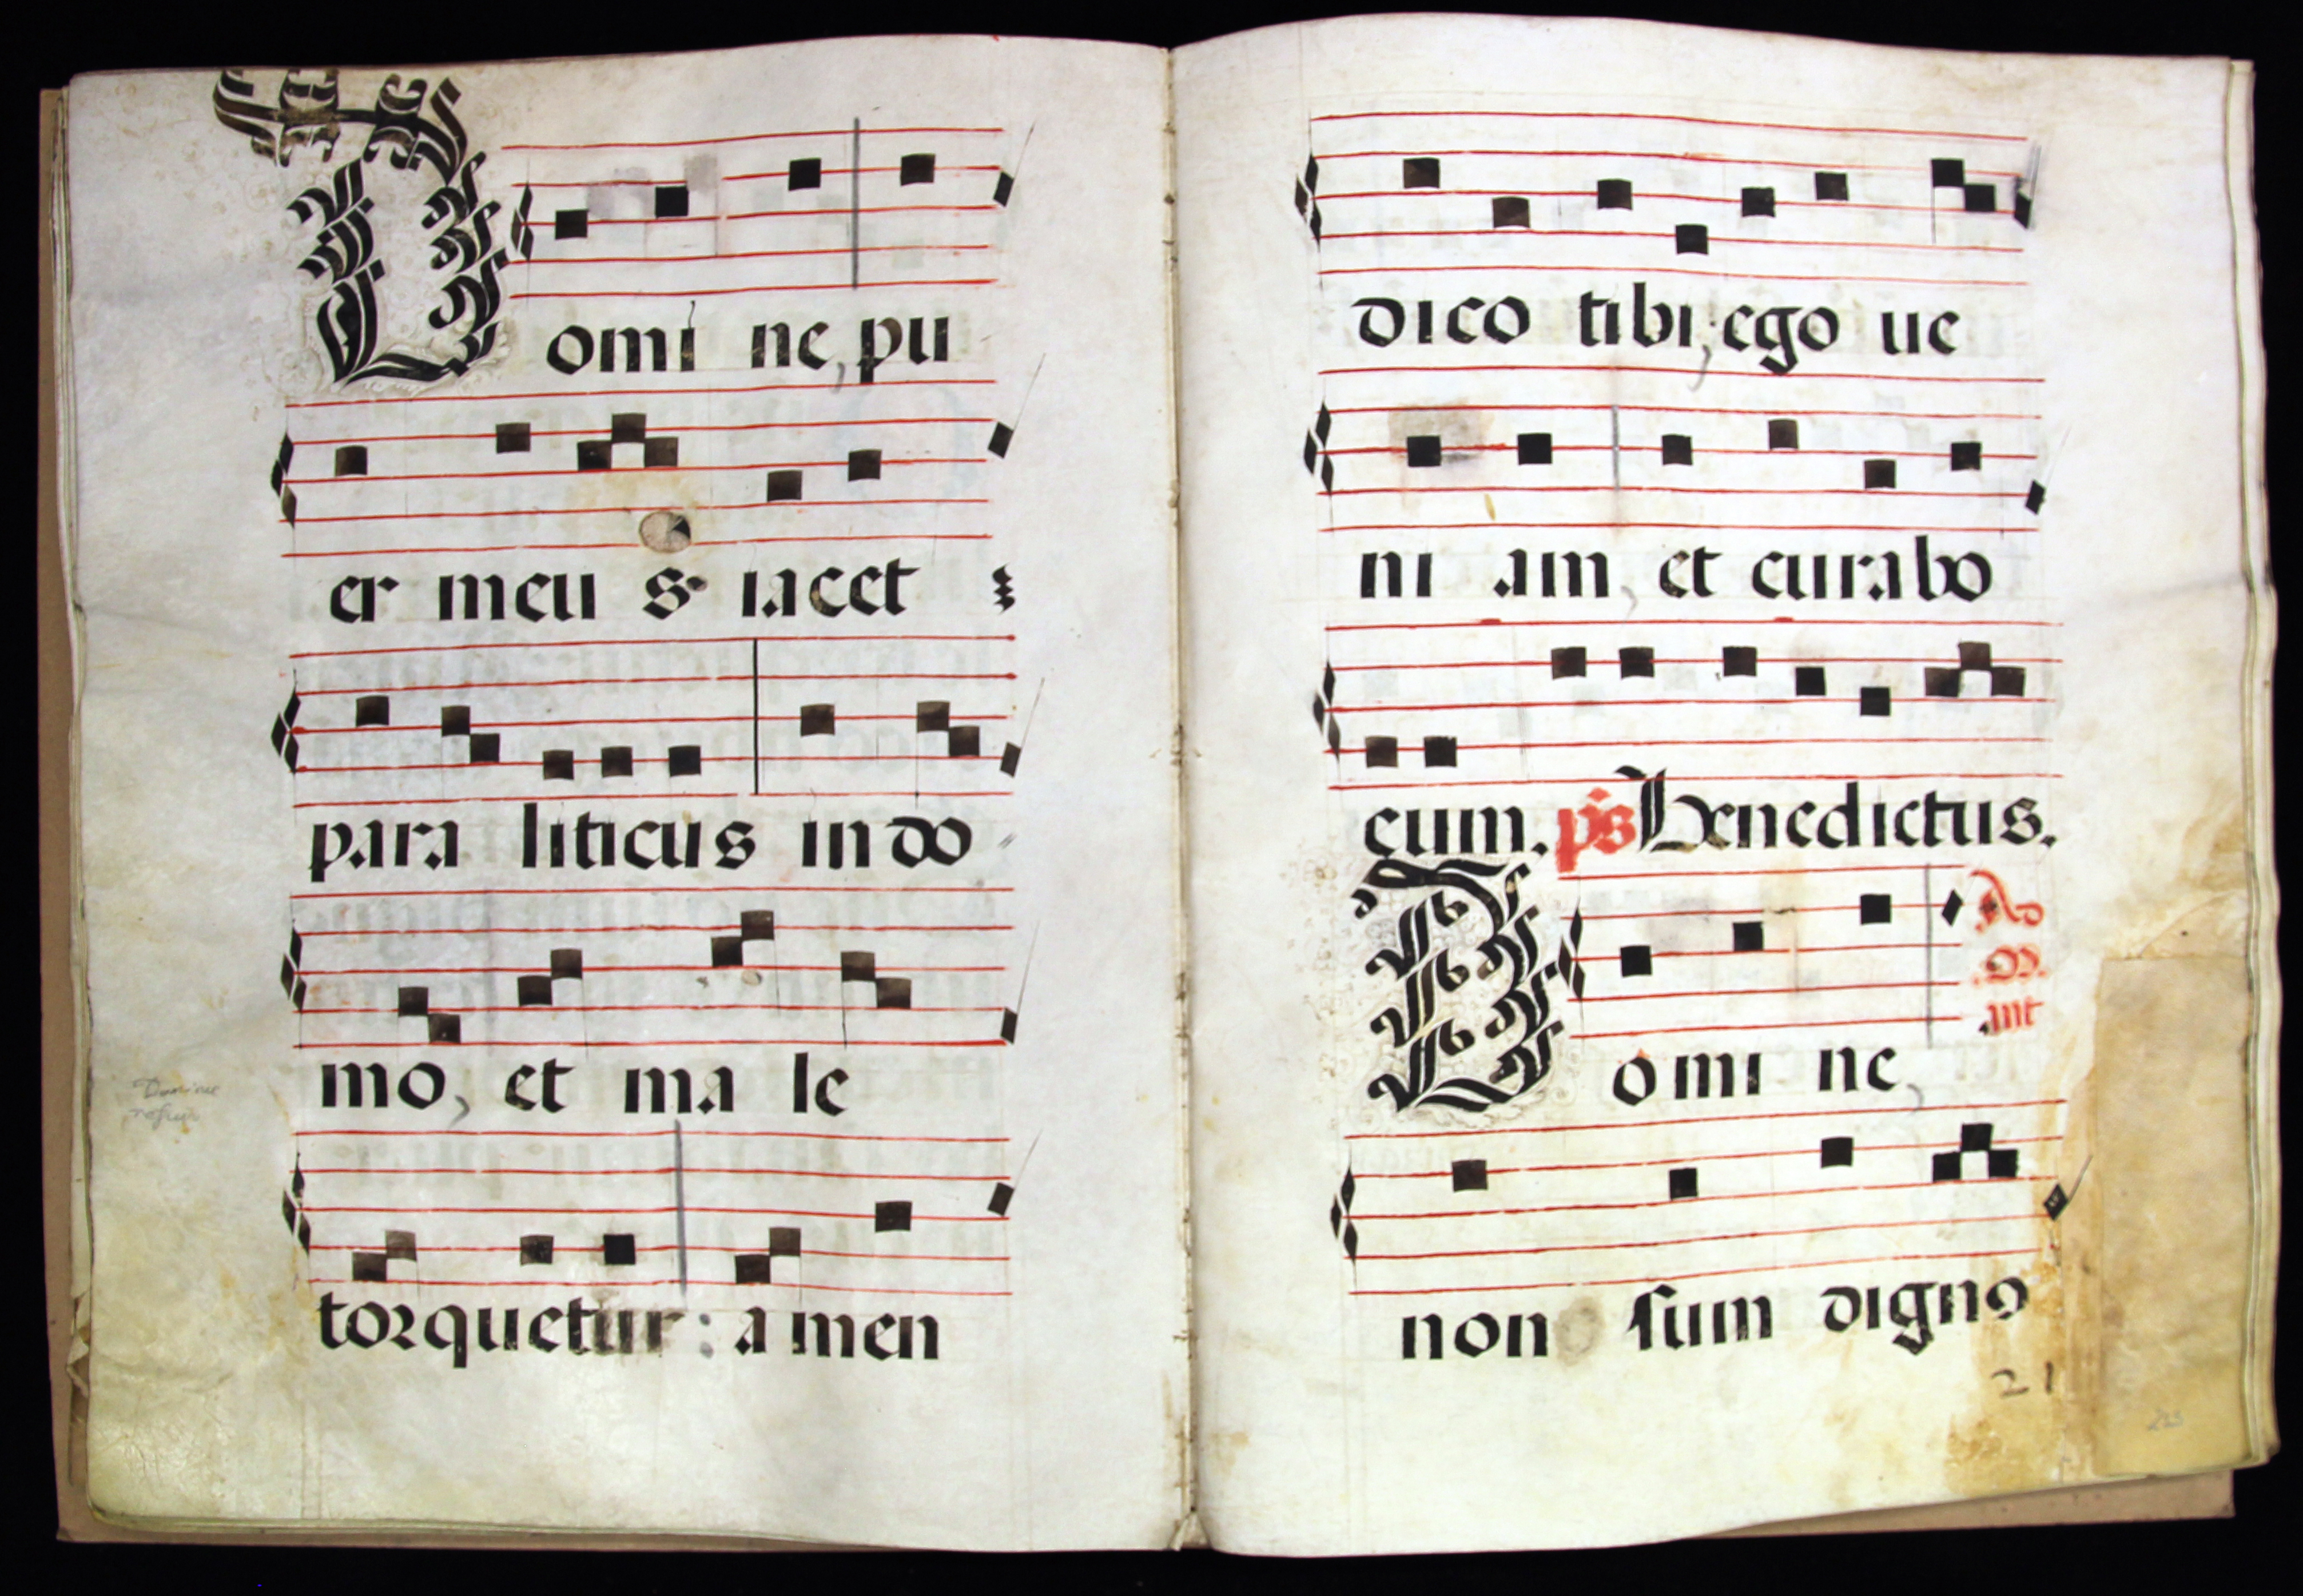 Domi ne, pu
er meu s iacet
para liticus in do
mo, et ma le
torquetur: a men
Domine
dico tibi, ego ue
ni am, et curabo
eum. ps Benedictus.
Ad
Domi ne,
non sum digno
21